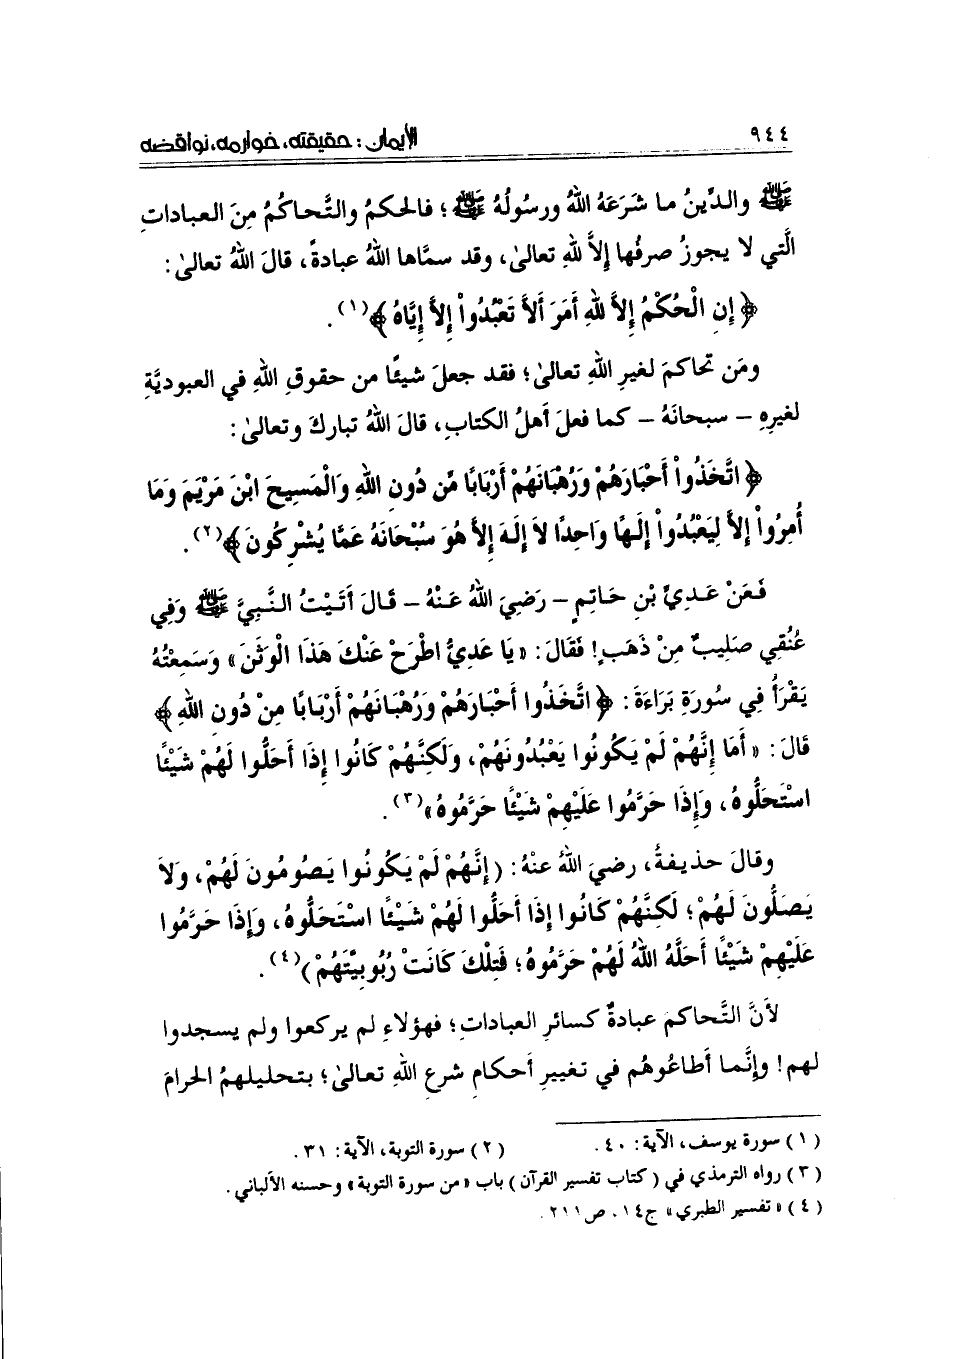 ٩٤٤
الأيمان : حقيقته، خوارمه، نواقضه
ﷺ والدِّينُ ما شَرَعَهُ اللهُ ورسولُهُ ﷺ ؛ فالحكمُ والتَّحاكمُ مِنَ العباداتِ
الَّتي لا يجوزُ صرفُها إلاَّ للهِ تعالىٰ، وقد سمَّاها اللهُ عبادةً، قالَ اللهُ تعالىٰ :
﴿ إِنِ الْحُكْمُ إِلاَّ للهِ أَمَرَ أَلاَّ تَعْبُدُواْ إِلاَّ إِيَّاهُ ﴾(١).
ومَن تحاكمَ لغيرِ اللهِ تعالىٰ؛ فقد جعلَ شيئًا من حقوقِ اللهِ في العبوديَّةِ
لغيرِهِ – سبحانَهُ – كما فعلَ أهلُ الكتابِ، قالَ اللهُ تباركَ وتعالىٰ :
﴿ اتَّخَذُواْ أَحْبَارَهُمْ وَرُهْبَانَهُمْ أَرْبَابًا مِّن دُونِ اللهِ وَالْمَسِيحَ ابْنَ مَرْيَمَ وَمَا
أُمِرُواْ إِلاَّ لِيَعْبُدُواْ إِلَـهًا وَاحِدًا لاَ إِلَـهَ إِلاَّ هُوَ سُبْحَانَهُ عَمَّا يُشْرِكُونَ ﴾(٢).
فَعَنْ عَدِيِّ بْنِ حَاتِمٍ – رَضِيَ اللهُ عَنْهُ – قَالَ أَتَيْتُ النَّبِيَّ ﷺ وَفِي
عُنُقِي صَلِيبٌ مِنْ ذَهَبٍ! فَقَالَ : « يَا عَدِيُّ اطْرَحْ عَنْكَ هَذَا الْوَثَنَ » وَسَمِعْتُهُ
يَقْرَأُ فِي سُورَةِ بَرَاءَةَ : ﴿ اتَّخَذُوا أَحْبَارَهُمْ وَرُهْبَانَهُمْ أَرْبَابًا مِنْ دُونِ اللهِ ﴾
قَالَ : « أَمَا إِنَّهُمْ لَمْ يَكُونُوا يَعْبُدُونَهُمْ، وَلَكِنَّهُمْ كَانُوا إِذَا أَحَلُّوا لَهُمْ شَيْئًا
اسْتَحَلُّوهُ، وَإِذَا حَرَّمُوا عَلَيْهِمْ شَيْئًا حَرَّمُوهُ»(٣).
وقالَ حذيفةُ، رضيَ اللهُ عنْهُ : ( إِنَّهُمْ لَمْ يَكُونُوا يَصُومُونَ لَهُمْ، وَلاَ
يَصَلُّونَ لَهُمْ؛ لَكِنَّهُمْ كَانُوا إِذَا أَحَلُّوا لَهُمْ شَيْئًا اسْتَحَلُّوهُ، وَإِذَا حَرَّمُوا
عَلَيْهِمْ شَيْئًا أَحَلَّهُ اللهُ لَهُمْ حَرَّمُوهُ؛ فَتِلْكَ كَانَتْ رُبُوبِيَّتَهُمْ )(٤).
لأنَّ التَّحاكم عبادةٌ كسائرِ العباداتِ؛ فهؤلاءِ لم يركعوا ولم يسجدوا
لهم! وإنَّما أطاعُوهُم في تغييرِ أحكامِ شرعِ اللهِ تعالىٰ؛ بتحليلهمُ الحرامَ
( ١ ) سورة يوسف، الآية : ٤٠. ( ٢ ) سورة التوبة، الآية : ٣١.
( ٣ ) رواه الترمذي في ( كتاب تفسير القرآن ) باب « من سورة التوبة » وحسنه الألباني .
( ٤ ) « تفسير الطبري » ج١٤، ص٢١١.